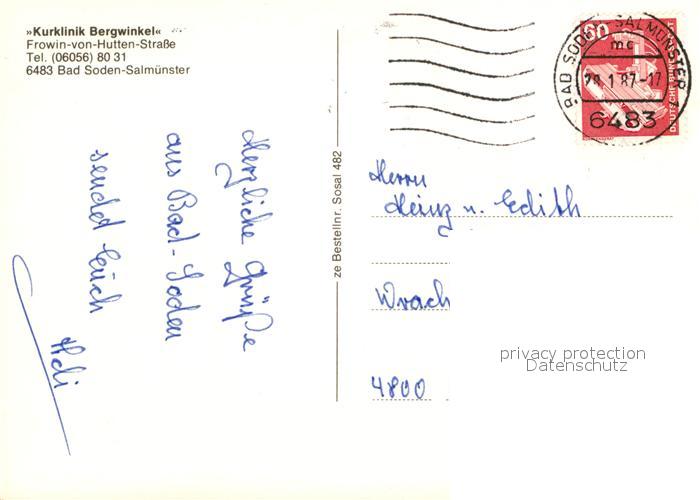 »Kurklinik Bergwinkel«
Frowin-von-Hutten-Straße
Tel. (06056) 80 31
6483 Bad Soden-Salmünster
Herzliche Grüße
aus Bad-Soden
sendet Euch
Heli
ze Bestellnr. Sosal 482
60
DEUTSCHE BUNDESPOST
BAD SODEN-SALMÜNSTER 1
mc
29.1.87-17
6483
Herrn
Heinz u. Edith
4800
privacy protection
Datenschutz